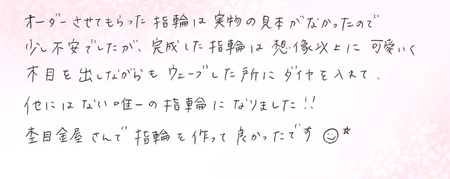 オーダーさせてもらった指輪は実物の見本がなかったので
少し不安でしたが、完成した指輪は想像以上に可愛いく
木目を出しながらもウェーブした所にダイヤを入れて、
他にはない唯一の指輪になりました!!
杢目金屋さんで指輪を作って良かったです